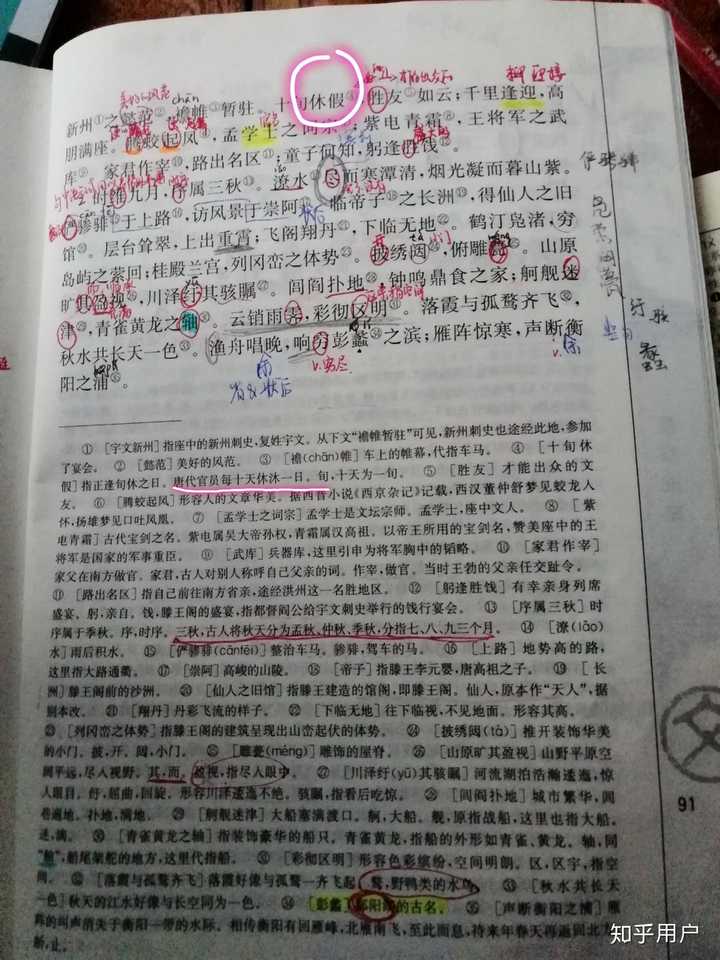 新州①之懿范②,襜帷③暂驻。十旬休假④,胜友⑤如云;千里逢迎,高
朋满座。腾蛟起凤⑥,孟学士之词宗⑦;紫电青霜⑧,王将军之武
库⑨。家君作宰⑩,路出名区⑪;童子何知,躬逢胜饯⑫。
时维九月,序属三秋⑬。潦水⑭尽而寒潭清,烟光凝而暮山紫。
俨骖騑⑮于上路⑯,访风景于崇阿⑰。临帝子⑱之长洲⑲,得仙人之旧
馆⑳。层台耸翠,上出重霄;飞阁翔丹㉑,下临无地㉒。鹤汀凫渚,穷
岛屿之萦回;桂殿兰宫,列冈峦之体势㉓。披绣闼㉔,俯雕甍㉕。山原
旷其盈视㉖,川泽纡其骇瞩㉗。闾阎扑地㉘,钟鸣鼎食之家;舸舰迷
津㉙,青雀黄龙之轴㉚。云销雨霁,彩彻区明㉛。落霞与孤鹜齐飞㉜,
秋水共长天一色㉝。渔舟唱晚,响穷彭蠡㉞之滨;雁阵惊寒,声断衡
阳之浦㉟。
美好的风范
chān
穷尽
俨骖騑
①[宇文新州]指座中的新州刺史,复姓宇文。从下文“襜帷暂驻”可见,新州刺史也途经此地,参加
了宴会。 ②[懿范]美好的风范。 ③[襜(chān)帷]车上的帷幕,代指车马。 ④[十旬休
假]指正逢旬休之日。唐代官员每十天休沐一日。旬,十天为一旬。 ⑤[胜友]才能出众的文
友。 ⑥[腾蛟起凤]形容人的文章华美。据西晋小说《西京杂记》记载,西汉董仲舒梦见蛟龙入
怀,扬雄梦见口吐凤凰。 ⑦[孟学士之词宗]孟学士是文坛宗师。孟学士,座中文人。 ⑧[紫
电青霜]古代宝剑之名。紫电属吴大帝孙权,青霜属汉高祖。以帝王所用的宝剑名,赞美座中的王
将军是国家的军事重臣。 ⑨[武库]兵器库,这里引申为将军胸中的韬略。 ⑩[家君作宰]
家父在南方做官。家君,古人对别人称呼自己父亲的词。作宰,做官。当时王勃的父亲任交趾令。
⑪[路出名区]指自己前往南方省亲,途经洪州这一名胜地区。 ⑫[躬逢胜饯]有幸亲身列席
盛宴。躬,亲自。饯,滕王阁的盛宴,指都督阎公给宇文刺史举行的饯行宴会。 ⑬[序属三秋]时
序属于季秋。序,时序。三秋,古人将秋天分为孟秋、仲秋、季秋,分指七、八、九三个月。 ⑭[潦(lǎo)
水]雨后积水。 ⑮[俨骖騑(cānfēi)]整治车马。骖騑,驾车的马。 ⑯[上路]地势高的路,
这里指大路通衢。 ⑰[崇阿]高峻的山陵。 ⑱[帝子]指滕王李元婴,唐高祖之子。 ⑲[长
洲]滕王阁前的沙洲。 ⑳[仙人之旧馆]指滕王建造的馆阁,即滕王阁。仙人,原本作“天人”,据
别本改。 ㉑[翔丹]丹彩飞流的样子。 ㉒[下临无地]往下临视,不见地面。形容其高。
㉓[列冈峦之体势]指滕王阁的建筑呈现出山峦起伏的体势。 ㉔[披绣闼(tà)]推开装饰华美
的小门。披,开。闼,小门。 ㉕[雕甍(méng)]雕饰的屋脊。 ㉖[山原旷其盈视]山野平原空
阔平远,尽人视野。其,而。盈视,指尽人眼中。 ㉗[川泽纡(yū)其骇瞩]河流湖泊浩瀚逶迤,惊
人眼目。纡,屈曲,回旋。形容川泽逶迤不绝。骇瞩,指看后吃惊。 ㉘[闾阎扑地]城市繁华,闾
巷遍地。扑地,满地。 ㉙[舸舰迷津]大船塞满渡口。舸,大船。舰,原指战船,这里也指大船。
迷,满。 ㉚[青雀黄龙之轴]指装饰豪华的船只。青雀黄龙,指船的外形如青雀、黄龙。轴,同
“舳”,船尾架舵的地方,这里代指船。 ㉛[彩彻区明]形容色彩缤纷,空间明朗。区,区宇,指空
间。 ㉜[落霞与孤鹜齐飞]落霞好像与孤鹜一齐飞起。鹜,野鸭类的水鸟。 ㉝[秋水共长天一
色]秋天的江水好像与长空同为一色。 ㉞[彭蠡]鄱阳湖的古名。 ㉟[声断衡阳之浦]雁
阵的叫声消失于衡阳一带的水际。相传衡阳有回雁峰,北雁南飞,至此而息,待来年春天再返回北方
91
知乎用户